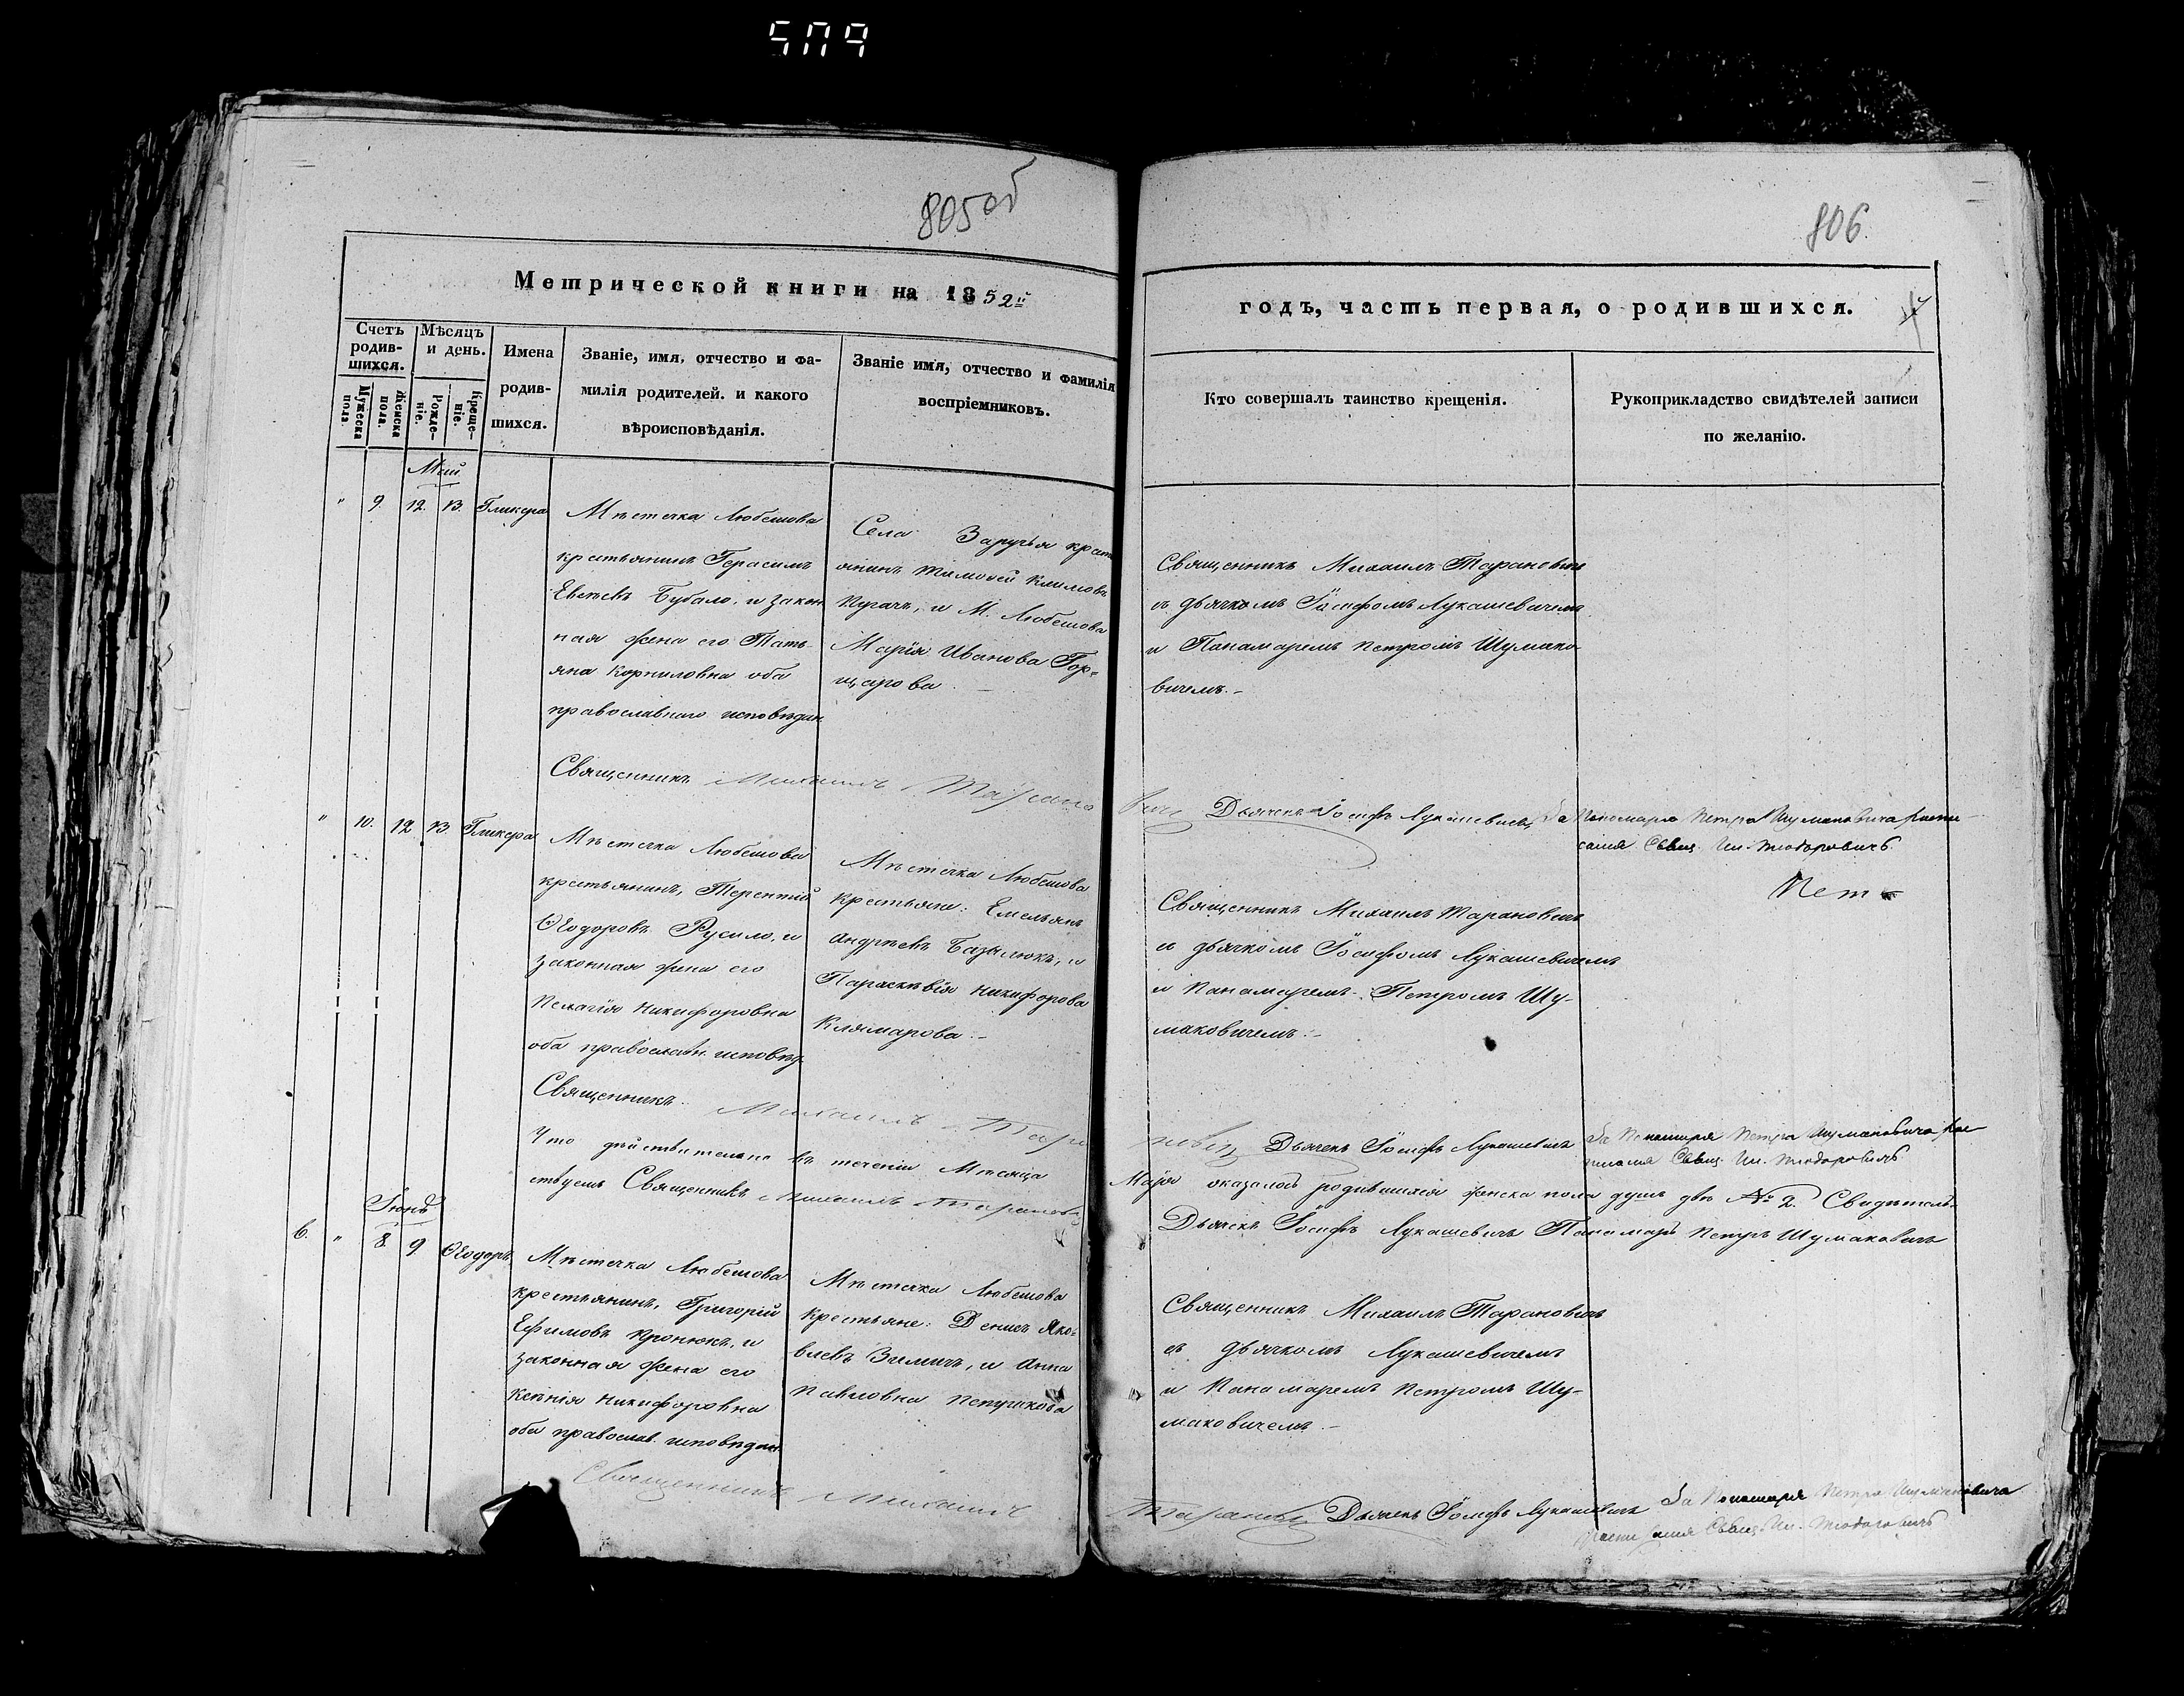 805об
806
Метрической книги на 1852й
годъ, часть первая, о родившихся.
Счетъ родив-шихся.
Мужеска пола.
Женска пола.
Мѣсяцъ и день.
Рожде-ніе.
Креще-ніе.
Имена родив-шихся.
Званіе, имя, отчество и фа-
милія родителей. и какого
вѣроисповѣданія.
Званіе имя, отчество и фамилія
воспріемниковъ.
Кто совершалъ таинство крещенія.
Рукоприкладство свидѣтелей записи
по желанію.
Май
" 9. 12. 13. Гликера
Мѣстечка Любешова
крестьянинъ Герасимъ
Бубало, и закон
ная жена его Тать-
яна Корниловна оба
православнаго исповѣдан.
Села Заручья крест
янинъ Тимоѳей Климовъ
Пугачъ, и М. Любешова
Марія Иванова Гор-
щарова.
Священникъ Михаилъ Тарановичъ
съ дьячкомъ Іосифомъ Лукашевичемъ
и Панамаремъ Петромъ Шумако-
вичемъ.
Священникъ Михаилъ Тарано
вичъ Дьячекъ Іосифъ Лукашевичъ За Пономаря Петра Шумаковича роспи-
сался Свящ. Ил. Теодоровичъ
" 10. 12 13 Гликера
Мѣстечка Любешова
крестьянинъ, Терентій
Ѳеодоровъ Русило, и
законная жена его
Пелагія Никифоровна
оба православн. исповѣд.
Мѣстечка Любешова
крестьяне: Емельянъ
Андреевъ Базылюкъ, и
Параскевія Никифорова
Клямарова.
Священникъ Михаилъ Тарановичъ
съ дьячкомъ Іосифомъ Лукашевичемъ
и Панамаремъ Петромъ Шу-
маковичемъ.
Священникъ Михаилъ Тара
новичъ Дьячекъ Іосифъ Лукашевичъ За Пономаря Петра Шумаковича рос
писался Свящ. Ил. Теодоровичъ
Что дѣйствительно въ теченіи Мѣсяца Маія оказалось родившихся женска пола душъ двѣ № 2. Свидѣтель-
ствуемъ Священникъ Михаилъ Тарановичъ Дьячекъ Іосифъ Лукашевичъ Панамарь Петръ Шумаковичъ
Іюнь
6. " 8. 9. Ѳеодоръ
Мѣстечка Любешова
крестьянинъ, Григорій
Ефимовъ Кронюкъ, и
законная жена его
Ксенія Никифоровна
оба православ. исповѣдан.
Мѣстечка Любешова
крестьяне: Денисъ Яко-
влевъ Зиличъ, и Анна
Павловна Петрикова
Священникъ Михаилъ Тарановичъ
съ дьячкомъ Лукашевичемъ
и Панамаремъ Петромъ Шу-
маковичемъ
Священникъ Михаилъ
Тарановичъ Дьячекъ Іосифъ Лукашевичъ За Пономаря Петра Шумаковича
росписался Свящ. Ил. Теодоровичъ